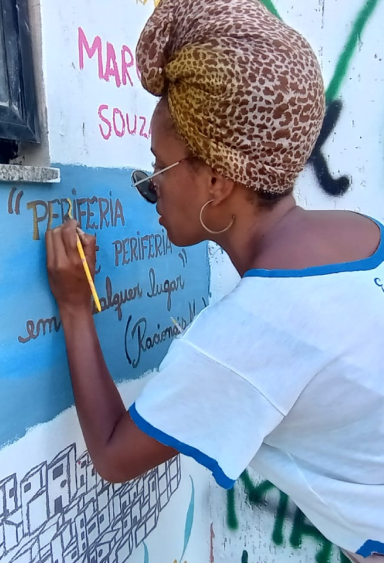 MAR
SOUZA
"PERIFERIA
É PERIFERIA
em qualquer lugar"
(Racionais